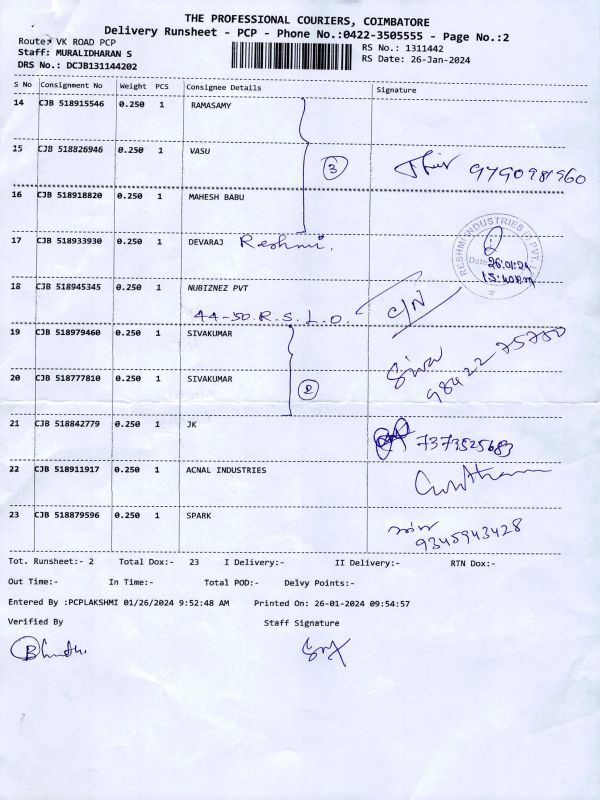 THE PROFESSIONAL COURIERS, COIMBATORE
Delivery Runsheet - PCP - Phone No.:0422-3505555 - Page No.:2
Route: VK ROAD PCP
RS No.: 1311442
Staff: MURALIDHARAN S
RS Date: 26-Jan-2024
DRS No.: DCJB131144202
S No Consignment No Weight PCS Consignee Details Signature
14 CJB 518915546 0.250 1 RAMASAMY
15 CJB 518826946 0.250 1 VASU
3
9790981960
16 CJB 518918820 0.250 1 MAHESH BABU
17 CJB 518933930 0.250 1 DEVARAJ Reshmi.
RESHMI INDUSTRIES PVT.
Date
26/01/24
18 CJB 518945345 0.250 1 NUBIZNEZ PVT
44-50.R.S.L.O. C/N
19 CJB 518979460 0.250 1 SIVAKUMAR
Siva
98422 75750
20 CJB 518777810 0.250 1 SIVAKUMAR
2
21 CJB 518842779 0.250 1 JK
7373525683
22 CJB 518911917 0.250 1 ACNAL INDUSTRIES
23 CJB 518879596 0.250 1 SPARK
9345943428
Tot. Runsheet:- 2 Total Dox:- 23 I Delivery:- II Delivery:- RTN Dox:-
Out Time:- In Time:- Total POD:- Delvy Points:-
Entered By :PCPLAKSHMI 01/26/2024 9:52:48 AM Printed On: 26-01-2024 09:54:57
Verified By Staff Signature